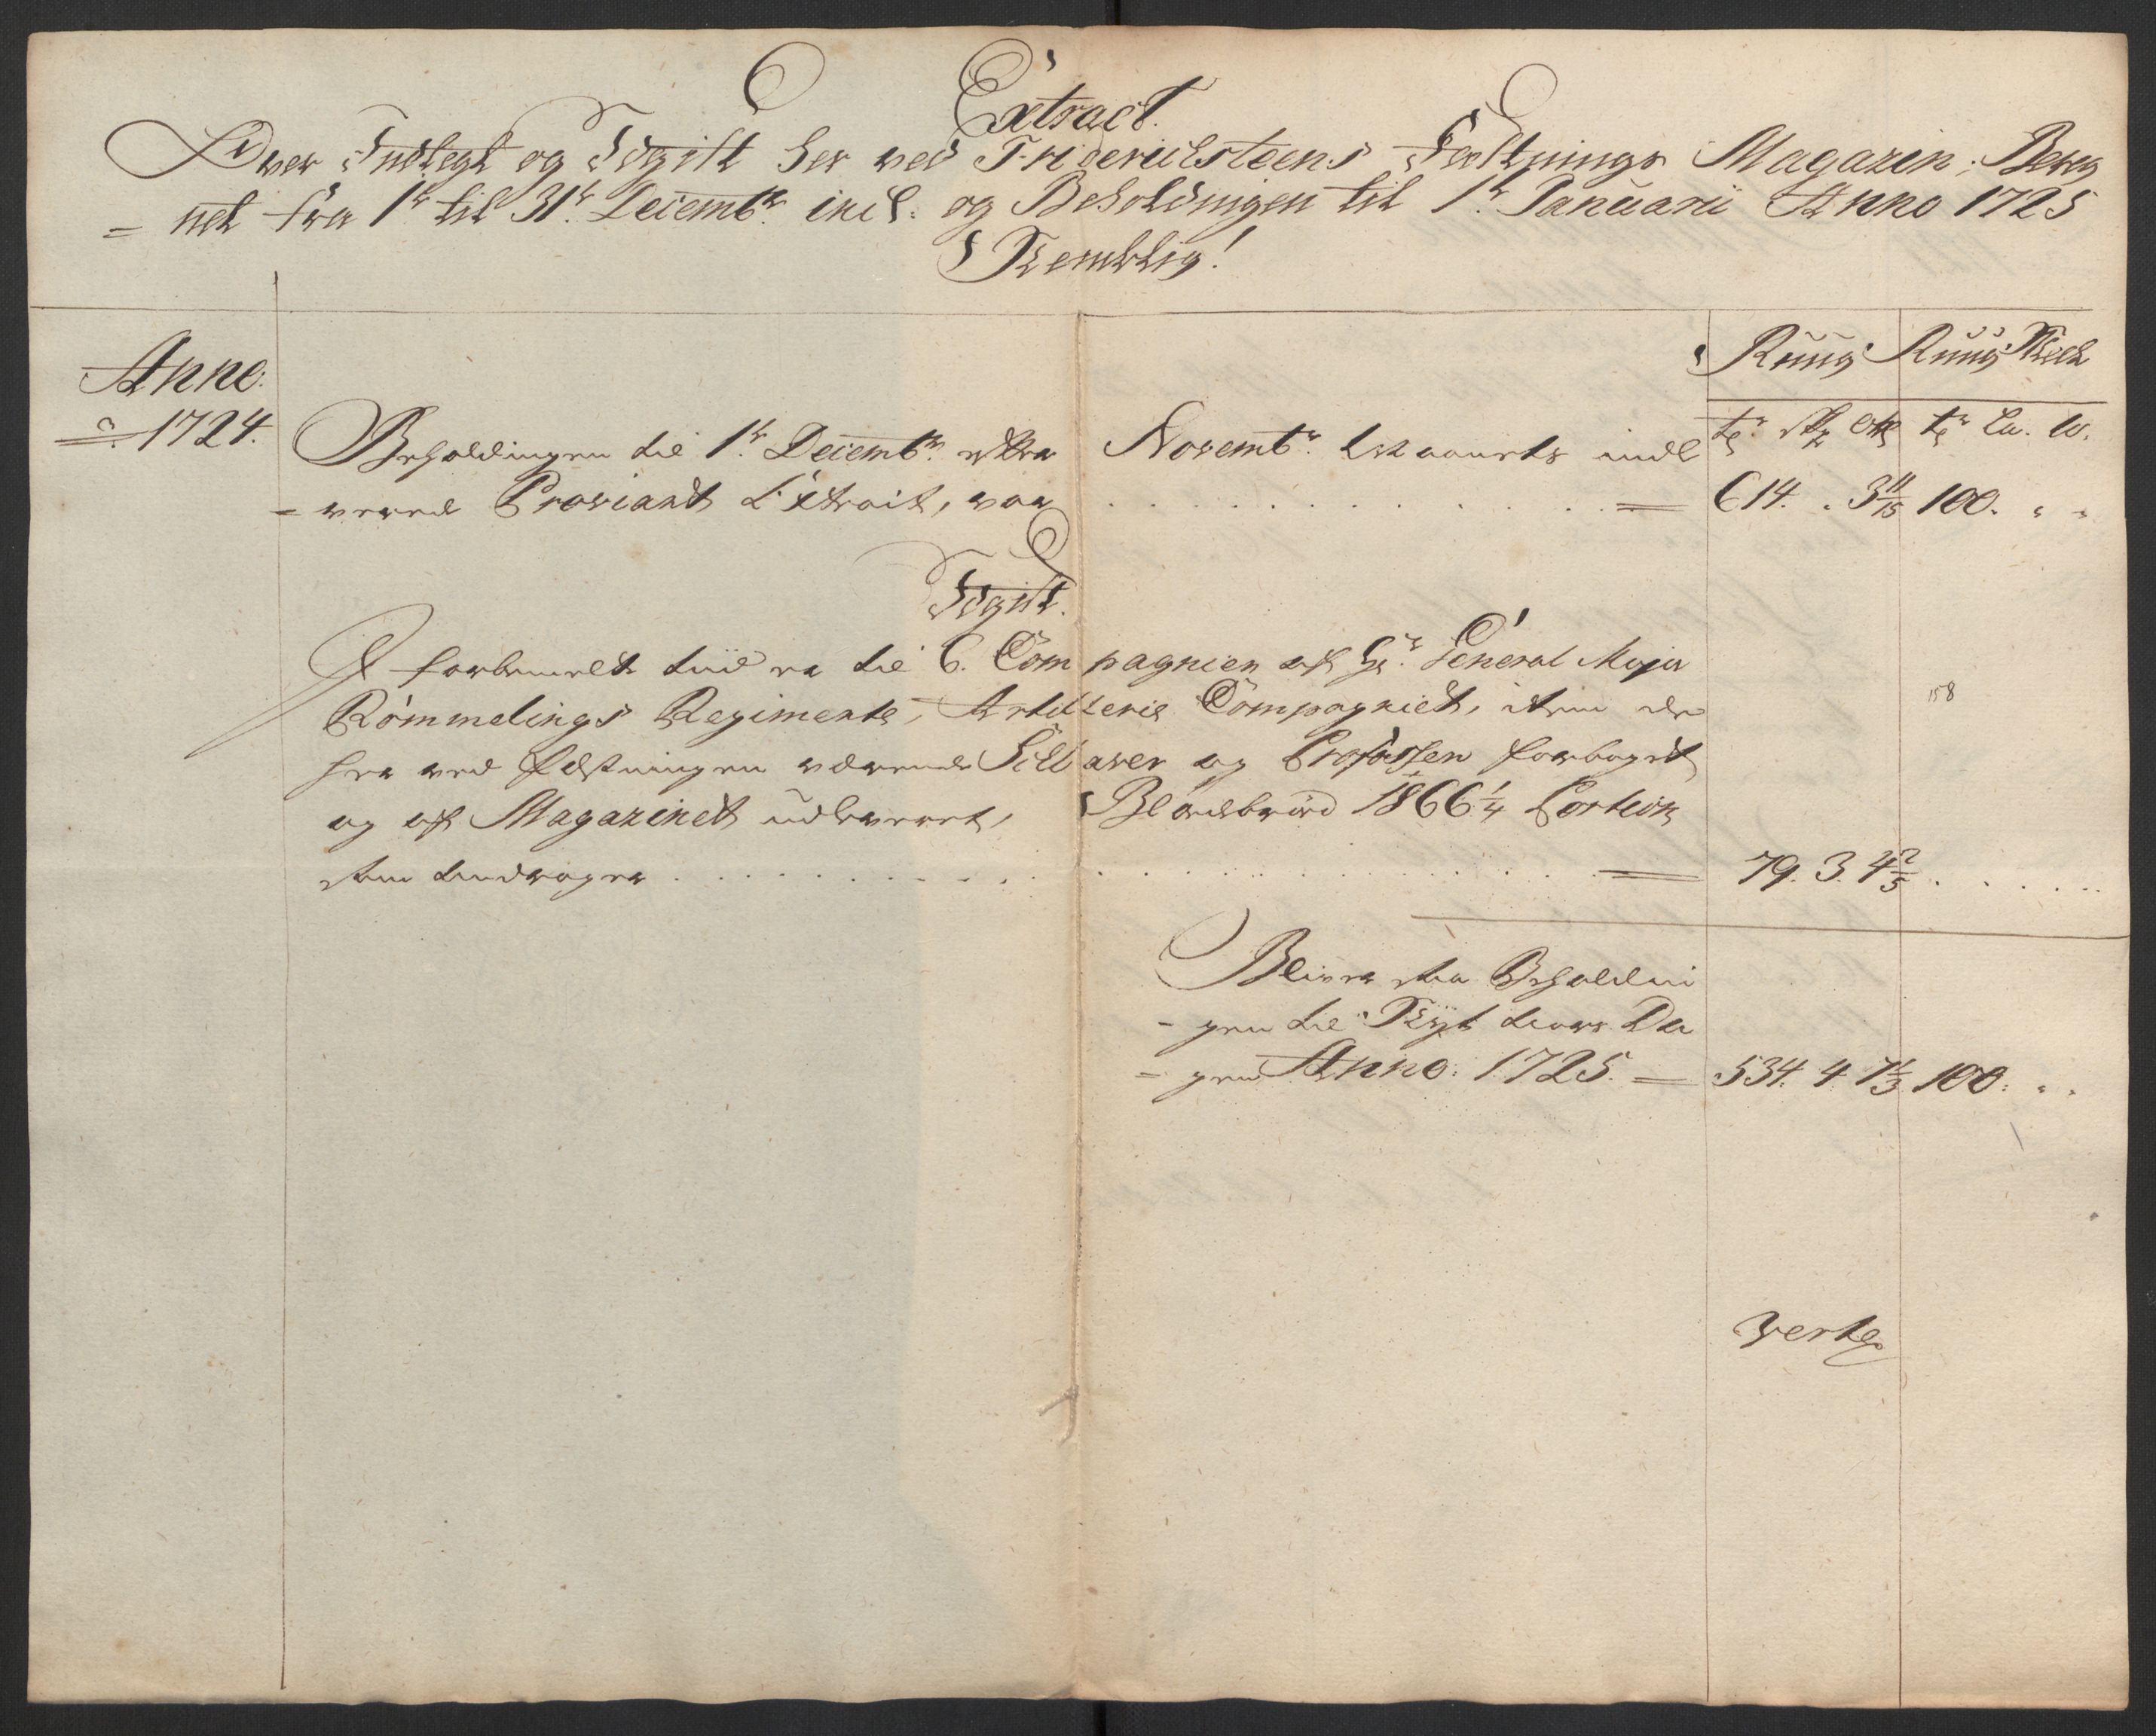 Extract.
Over Indtegt og Udgift her ved Friderichsteens Festnings Magazin, Bereg
= net fra 1te til 31te Decembr. incl: og Beholdningen til 1te Januarii Anno 1725
Nemblig!
Anno
1724.
Ruug Ruug Meel
tr. tr. Lu. W.
Beholdingen til 1te Decembr. efter Novembr. Maanets indl
= vered Proviant Extract, var = 614. . 3 11/15 100. " "
Udgift.
I forbemelte tiid er til 6. Compagnier af Hr. General Major
Rømmelings Regimente, Artillerie Compagniet, item de
her ved Fæstningen værende Sclaver og Profossen forbaget
og af Magazinet udleveret, Blødbrød 1866 1/4 Portion
som andrager = 79. 3. 4 2/5
158
Bliver saa Beholdni
- gen til Nyt Aars Da
= gen Anno: 1725. = 534. 4. 7 1/3 100. " "
Verte